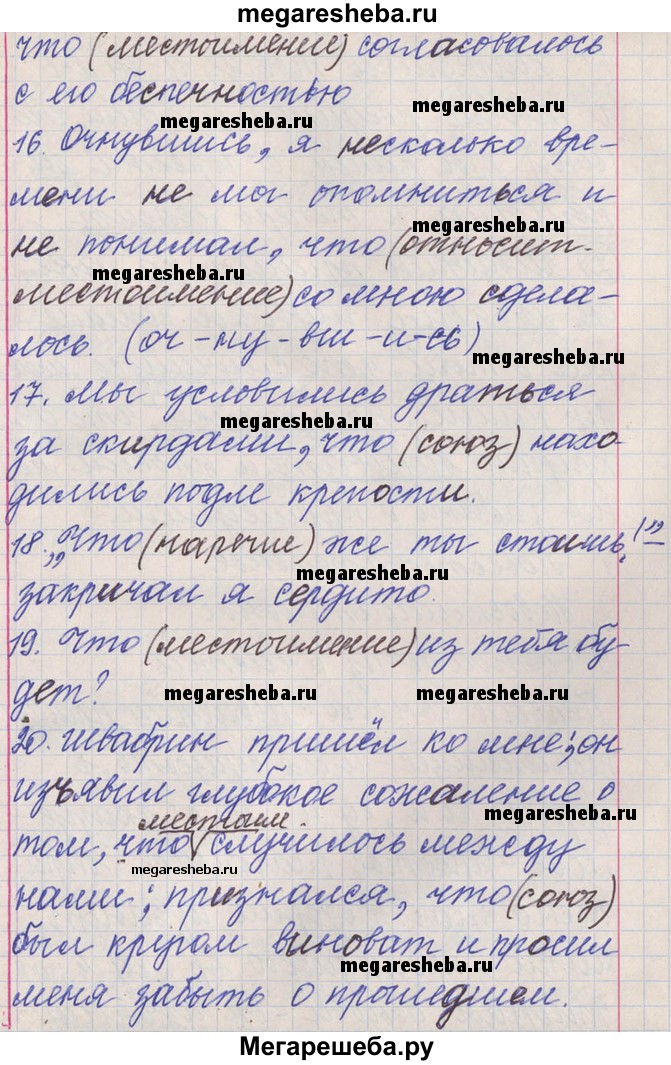 megaresheba.ru
что (местоимение) согласовалось
с его беспечностью
megaresheba.ru
16. Очнувшись, я несколько вре-
мени не мог опомниться и
megaresheba.ru
не понимал, что (относит.
megaresheba.ru
местоимение) со мною сдела-
лось. (оч-ну-вши-и-сь)
megaresheba.ru
17. Мы условились драться
megaresheba.ru
за скирдами, что (союз) нахо-
дились подле крепости.
18. „Что (наречие) же ты стоишь!" –
megaresheba.ru
закричал я сердито.
19. Что (местоимение) из тебя бу-
дет?
megaresheba.ru megaresheba.ru
20. Швабрин пришёл ко мне; он
изъявил глубокое сожаление о
местоим.
том, что случилось между
megaresheba.ru
нами; признался, что (союз)
был кругом виноват и просил
megaresheba.ru
меня забыть о прошедшем.
Мегарешеба.ру